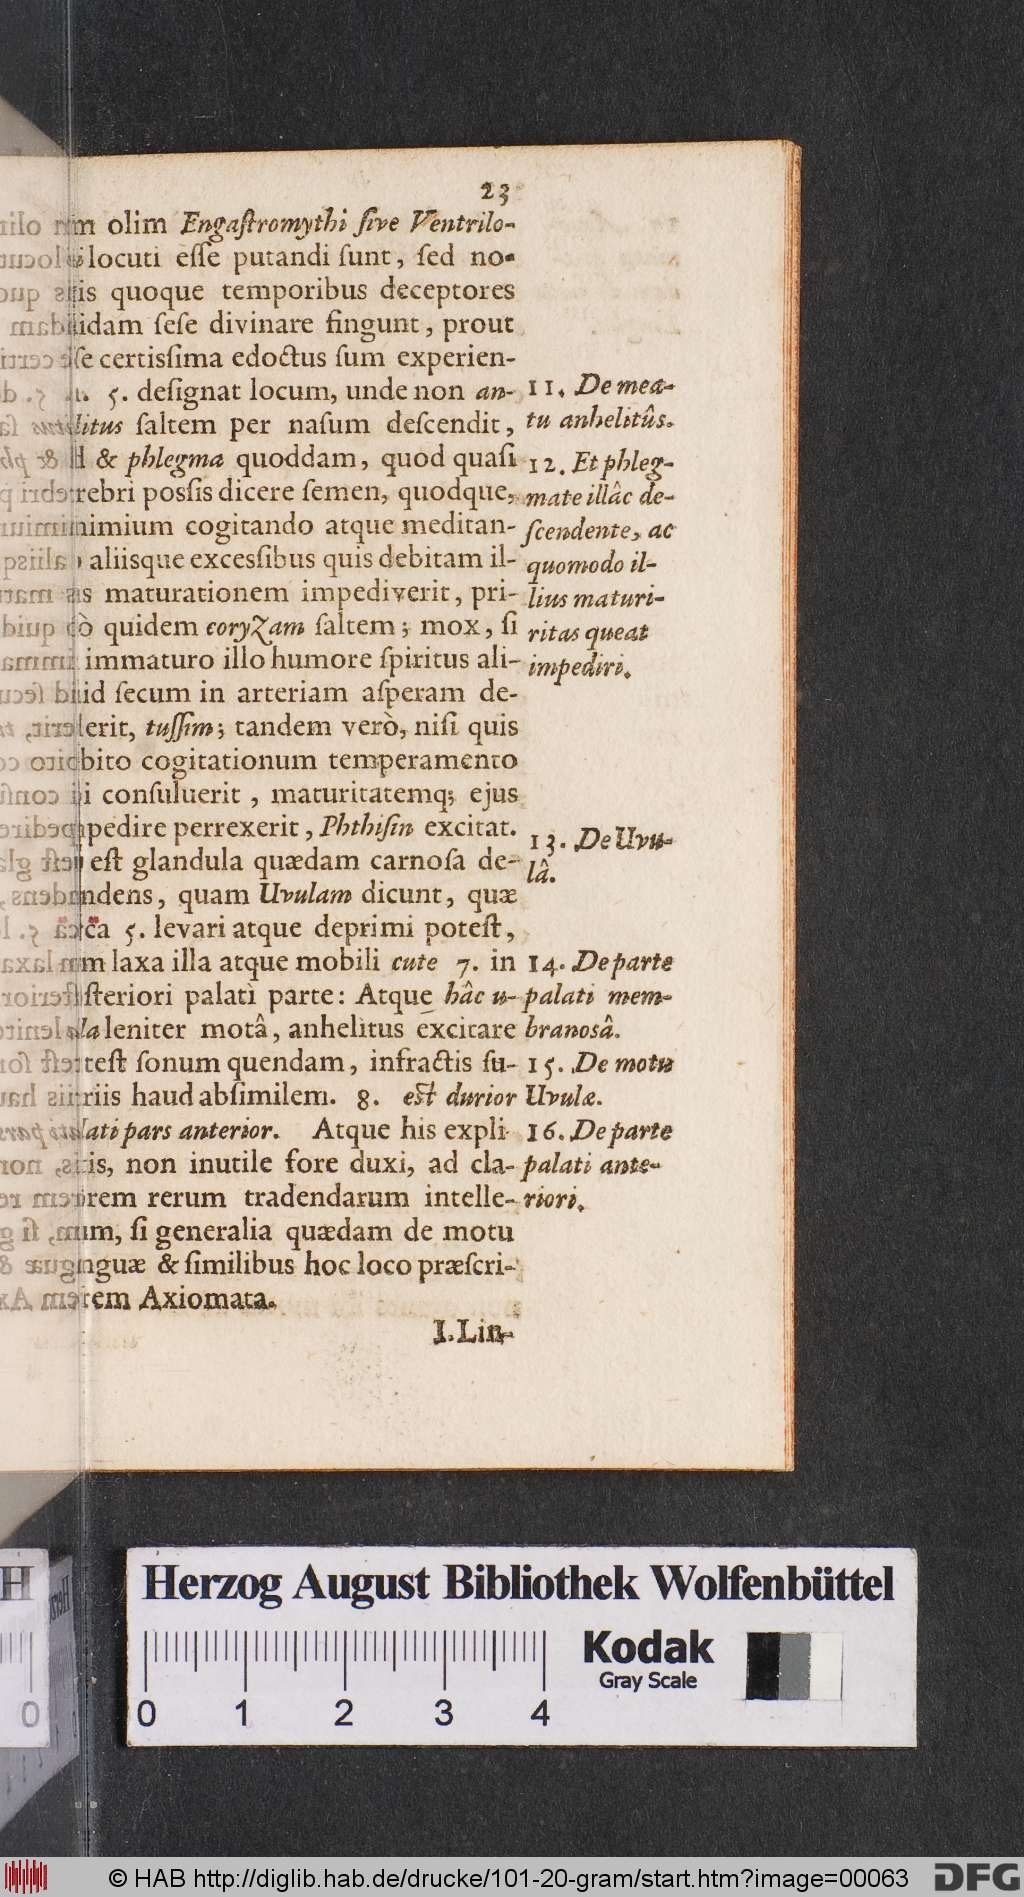 23
m olim Engaſtromythi ſive Ventrilo-
locuti eſſe putandi ſunt, ſed no-
is quoque temporibus deceptores
idam ſeſe divinare fingunt, prout
ſe certisſima edoctus ſum experien-
5. deſignat locum, unde non an-
litus ſaltem per naſum deſcendit,
& phlegma quoddam, quod quaſi
rebri posſis dicere ſemen, quodque,
nimium cogitando atque meditan-
aliisque excesſibus quis debitam il-
s maturationem impediverit, pri-
ò quidem coryzam ſaltem; mox, ſi
immaturo illo humore ſpiritus ali-
id ſecum in arteriam aſperam de-
lerit, tuſſim; tandem verò, niſi quis
bito cogitationum temperamento
i conſuluerit, maturitatemq; ejus
pedire perrexerit, Phthiſin excitat.
eſt glandula quædam carnoſa de-
ndens, quam Uvulam dicunt, quæ
ca 5. levari atque deprimi poteſt,
m laxa illa atque mobili cute 7. in
ſteriori palati parte: Atque hâc u-
la leniter motâ, anhelitus excitare
teſt ſonum quendam, infractis ſu-
riis haud abſimilem. 8. eſt durior
lati pars anterior. Atque his expli
is, non inutile fore duxi, ad cla-
rem rerum tradendarum intelle-
um, ſi generalia quædam de motu
nguæ & ſimilibus hoc loco præſcri-
rem Axiomata.
I. Lin-
11. De mea-
tu anhelitûs.
12. Et phleg-
mate illâc de-
ſcendente, ac
quomodo il-
lius maturi-
ritas queat
impediri.
13. De Uvu-
lâ.
14. De parte
palati mem-
branosâ.
15. De motu
Uvulæ.
16. De parte
palati ante-
riori.
Herzog August Bibliothek Wolfenbüttel
Kodak
Gray Scale
0 1 2 3 4
© HAB http://diglib.hab.de/drucke/101-20-gram/start.htm?image=00063
DFG